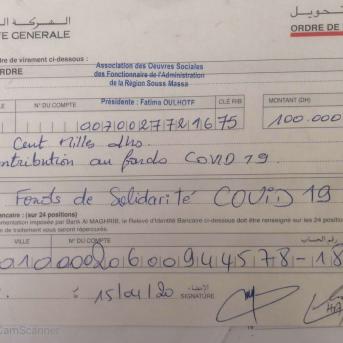 الشركة ال
TE GENERALE
تحويل
ORDRE DE
dre de virement ci-dessous :
ORDRE
Association des Oeuvres Sociales
des Fonctionnaire de l'Administration
de la Région Souss Massa
Présidente : Fatima OULHOTF
LLE
N° DU COMPTE
CLÉ RIB
MONTANT (DH)
00700277216 75
100.000
Cent Mille dhs.
ntribution au fonds COVID 19.
Fonds de Solidarité COVID 19
ancaire : (sur 24 positions)
umentation imposée par Bank Al MAGHRIB, le Relevé d'Identité Bancaire ci-dessous doit être renseigné sur les 24 position
de traitement vous seront répercutés.
VILLE
N° DU COMPTE
رقم الحساب
01000020600944578-18
15/04/20
الإمضاء
SIGNATURE
CamScanner